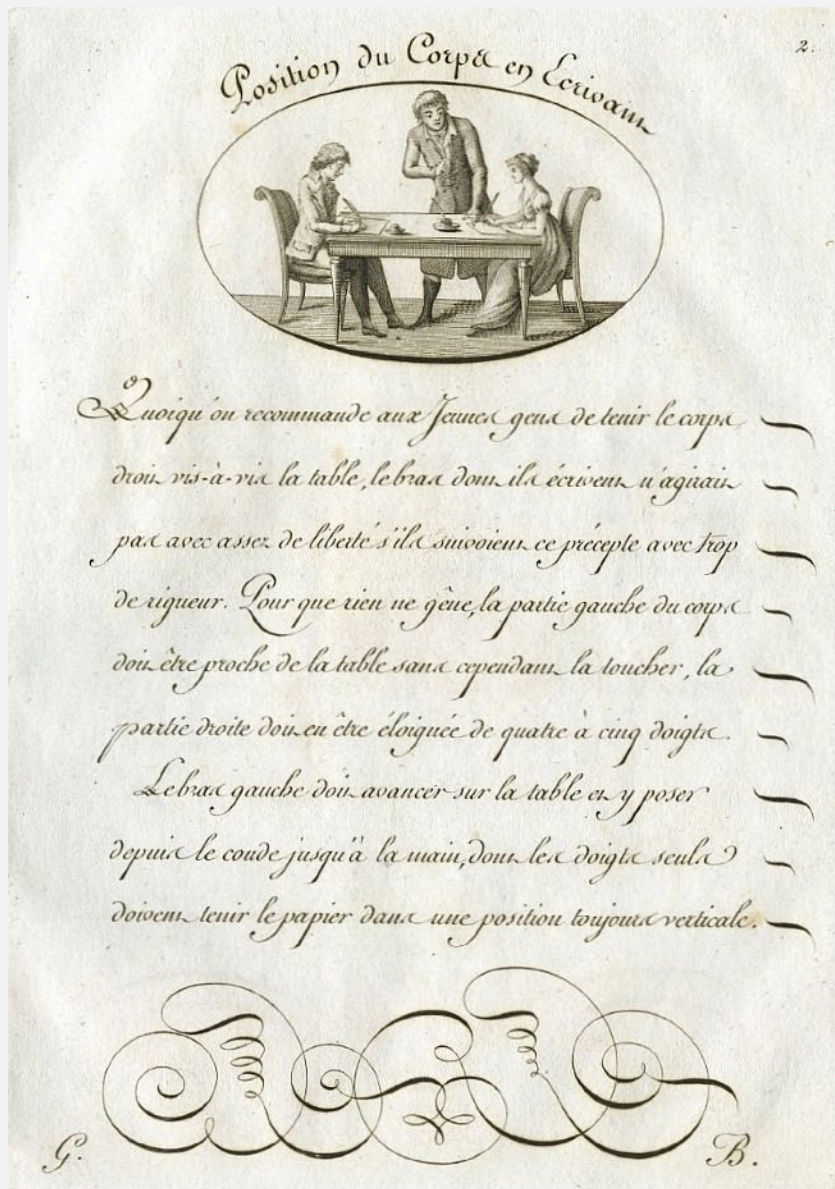 2.
Position du Corps en Ecrivant
Quoiqu'on recommande aux Jeunes gens de tenir le corps
droit vis-à-vis la table, le bras dont ils écrivent n'agirait
pas avec assez de liberté s'ils suivoient ce précepte avec trop
de rigueur. Pour que rien ne gêne, la partie gauche du corps
doit être proche de la table sans cependant la toucher, la
partie droite doit en être éloignée de quatre à cinq doigts.
Le bras gauche doit avancer sur la table et y poser
depuis le coude jusqu'à la main, dont les doigts seuls
doivent tenir le papier dans une position toujours verticale.
G. B.